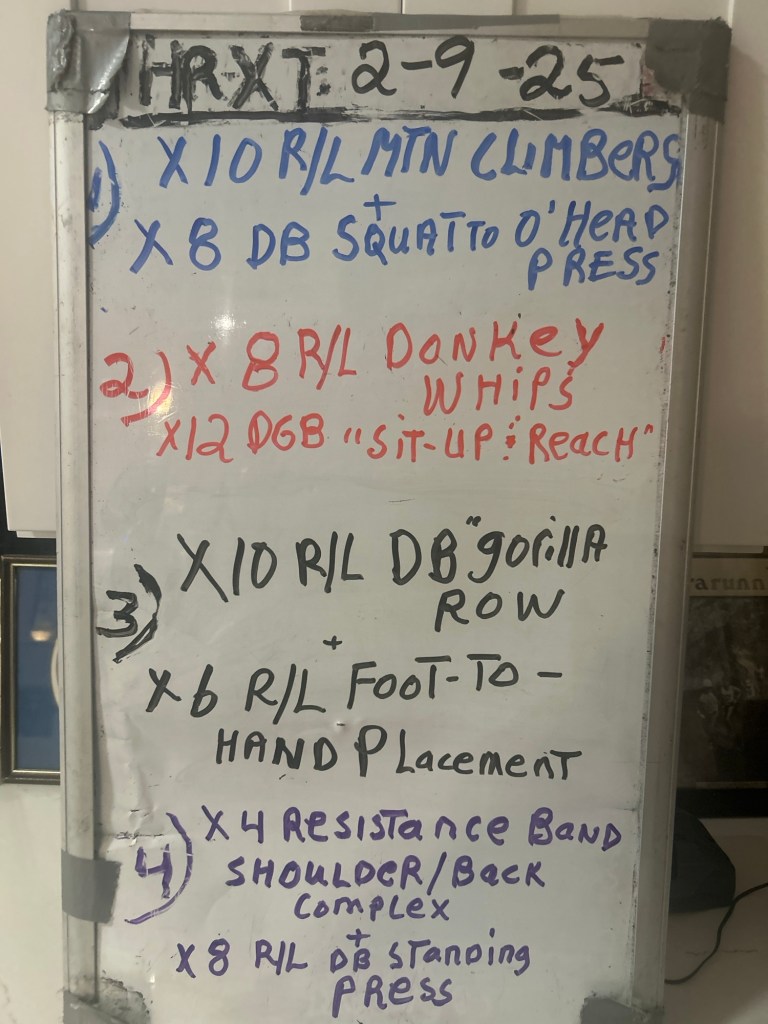 HR-XT: 2-9-25
1) X10 R/L MTN CLIMBERS
+
X8 DB SQUAT TO O'HEAD
PRESS
2) X 8 R/L DONKEY
WHIPS
X12 DGB "SIT-UP & REACH"
3) X10 R/L DB "gorilla
ROW
+
X6 R/L FOOT-TO-
HAND PLacement
4) X4 Resistance Band
SHOULDER/Back
Complex
+
X8 R/L DB Standing
PRESS
arunn